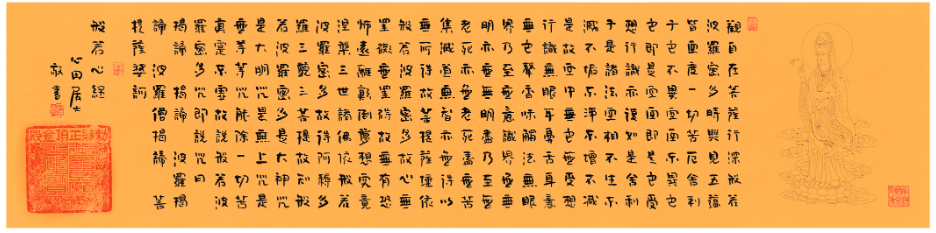 觀自在菩薩行深般若
波羅蜜多時照見五蘊
皆空度一切苦厄舍利
子色不異空空不異色
色即是空空即是色受
想行識亦復如是舍利
子是諸法空相不生不
滅不垢不淨不增不減
是故空中無色無受想
行識無眼耳鼻舌身意
無色聲香味觸法無眼
界乃至無意識界無無
明亦無無明盡乃至無
老死亦無老死盡無苦
集滅道無智亦無得以
無所得故菩提薩埵依
般若波羅蜜多故心無
罣礙無罣礙故無有恐
怖遠離顛倒夢想究竟
涅槃三世諸佛依般若
波羅蜜多故得阿耨多
羅三藐三菩提故知般
若波羅蜜多是大神咒
是大明咒是無上咒是
無等等咒能除一切苦
真實不虛故說般若波
羅蜜多咒即說咒曰
揭諦 揭諦 波羅揭
諦 波羅僧揭諦 菩
提薩婆訶
般若心經
心田居士
敬書